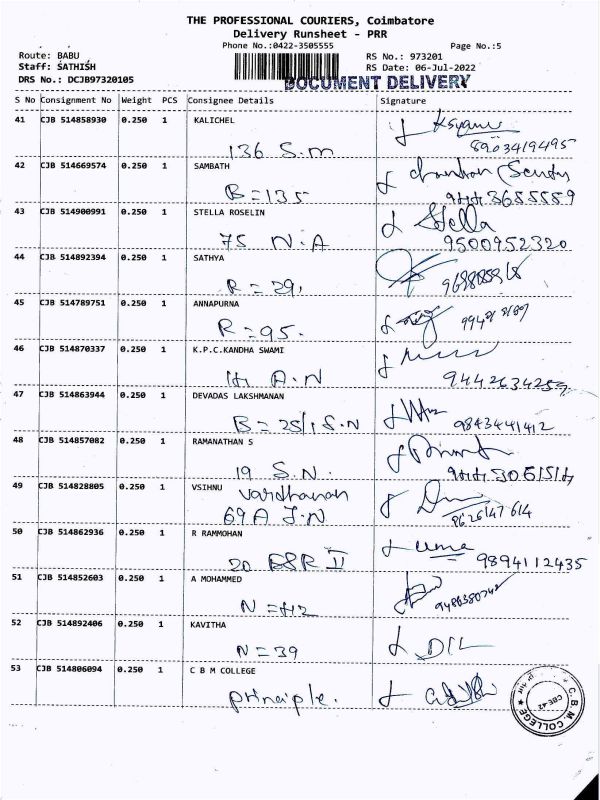 THE PROFESSIONAL COURIERS, Coimbatore
Delivery Runsheet - PRR
Phone No.:0422-3505555 Page No.:5
Route: BABU RS No.: 973201
Staff: SATHISH RS Date: 06-Jul-2022
DRS No.: DCJB97320105 DOCUMENT DELIVERY
S No Consignment No Weight PCS Consignee Details Signature
41 CJB 514858930 0.250 1 KALICHEL
136 S.m 8903419495
42 CJB 514669574 0.250 1 SAMBATH
B = 135
43 CJB 514900991 0.250 1 STELLA ROSELIN Stella
75 N.A 9500952320
44 CJB 514892394 0.250 1 SATHYA
R = 29,
45 CJB 514789751 0.250 1 ANNAPURNA
R = 95.
46 CJB 514870337 0.250 1 K.P.C.KANDHA SWAMI
A.N 9442634259
47 CJB 514863944 0.250 1 DEVADAS LAKSHMANAN
B = 25/1 S.N 9843441412
48 CJB 514857082 0.250 1 RAMANATHAN S
19 S.N.
49 CJB 514828805 0.250 1 VSIHNU
Vardhanan
69A J.N 8626147614
50 CJB 514862936 0.250 1 R RAMMOHAN uma
20 II 9894112435
51 CJB 514852603 0.250 1 A MOHAMMED
N = 42
52 CJB 514892406 0.250 1 KAVITHA
N = 39
53 CJB 514806094 0.250 1 C B M COLLEGE
principle.
C. B. M. COLLEGE
CBE-42